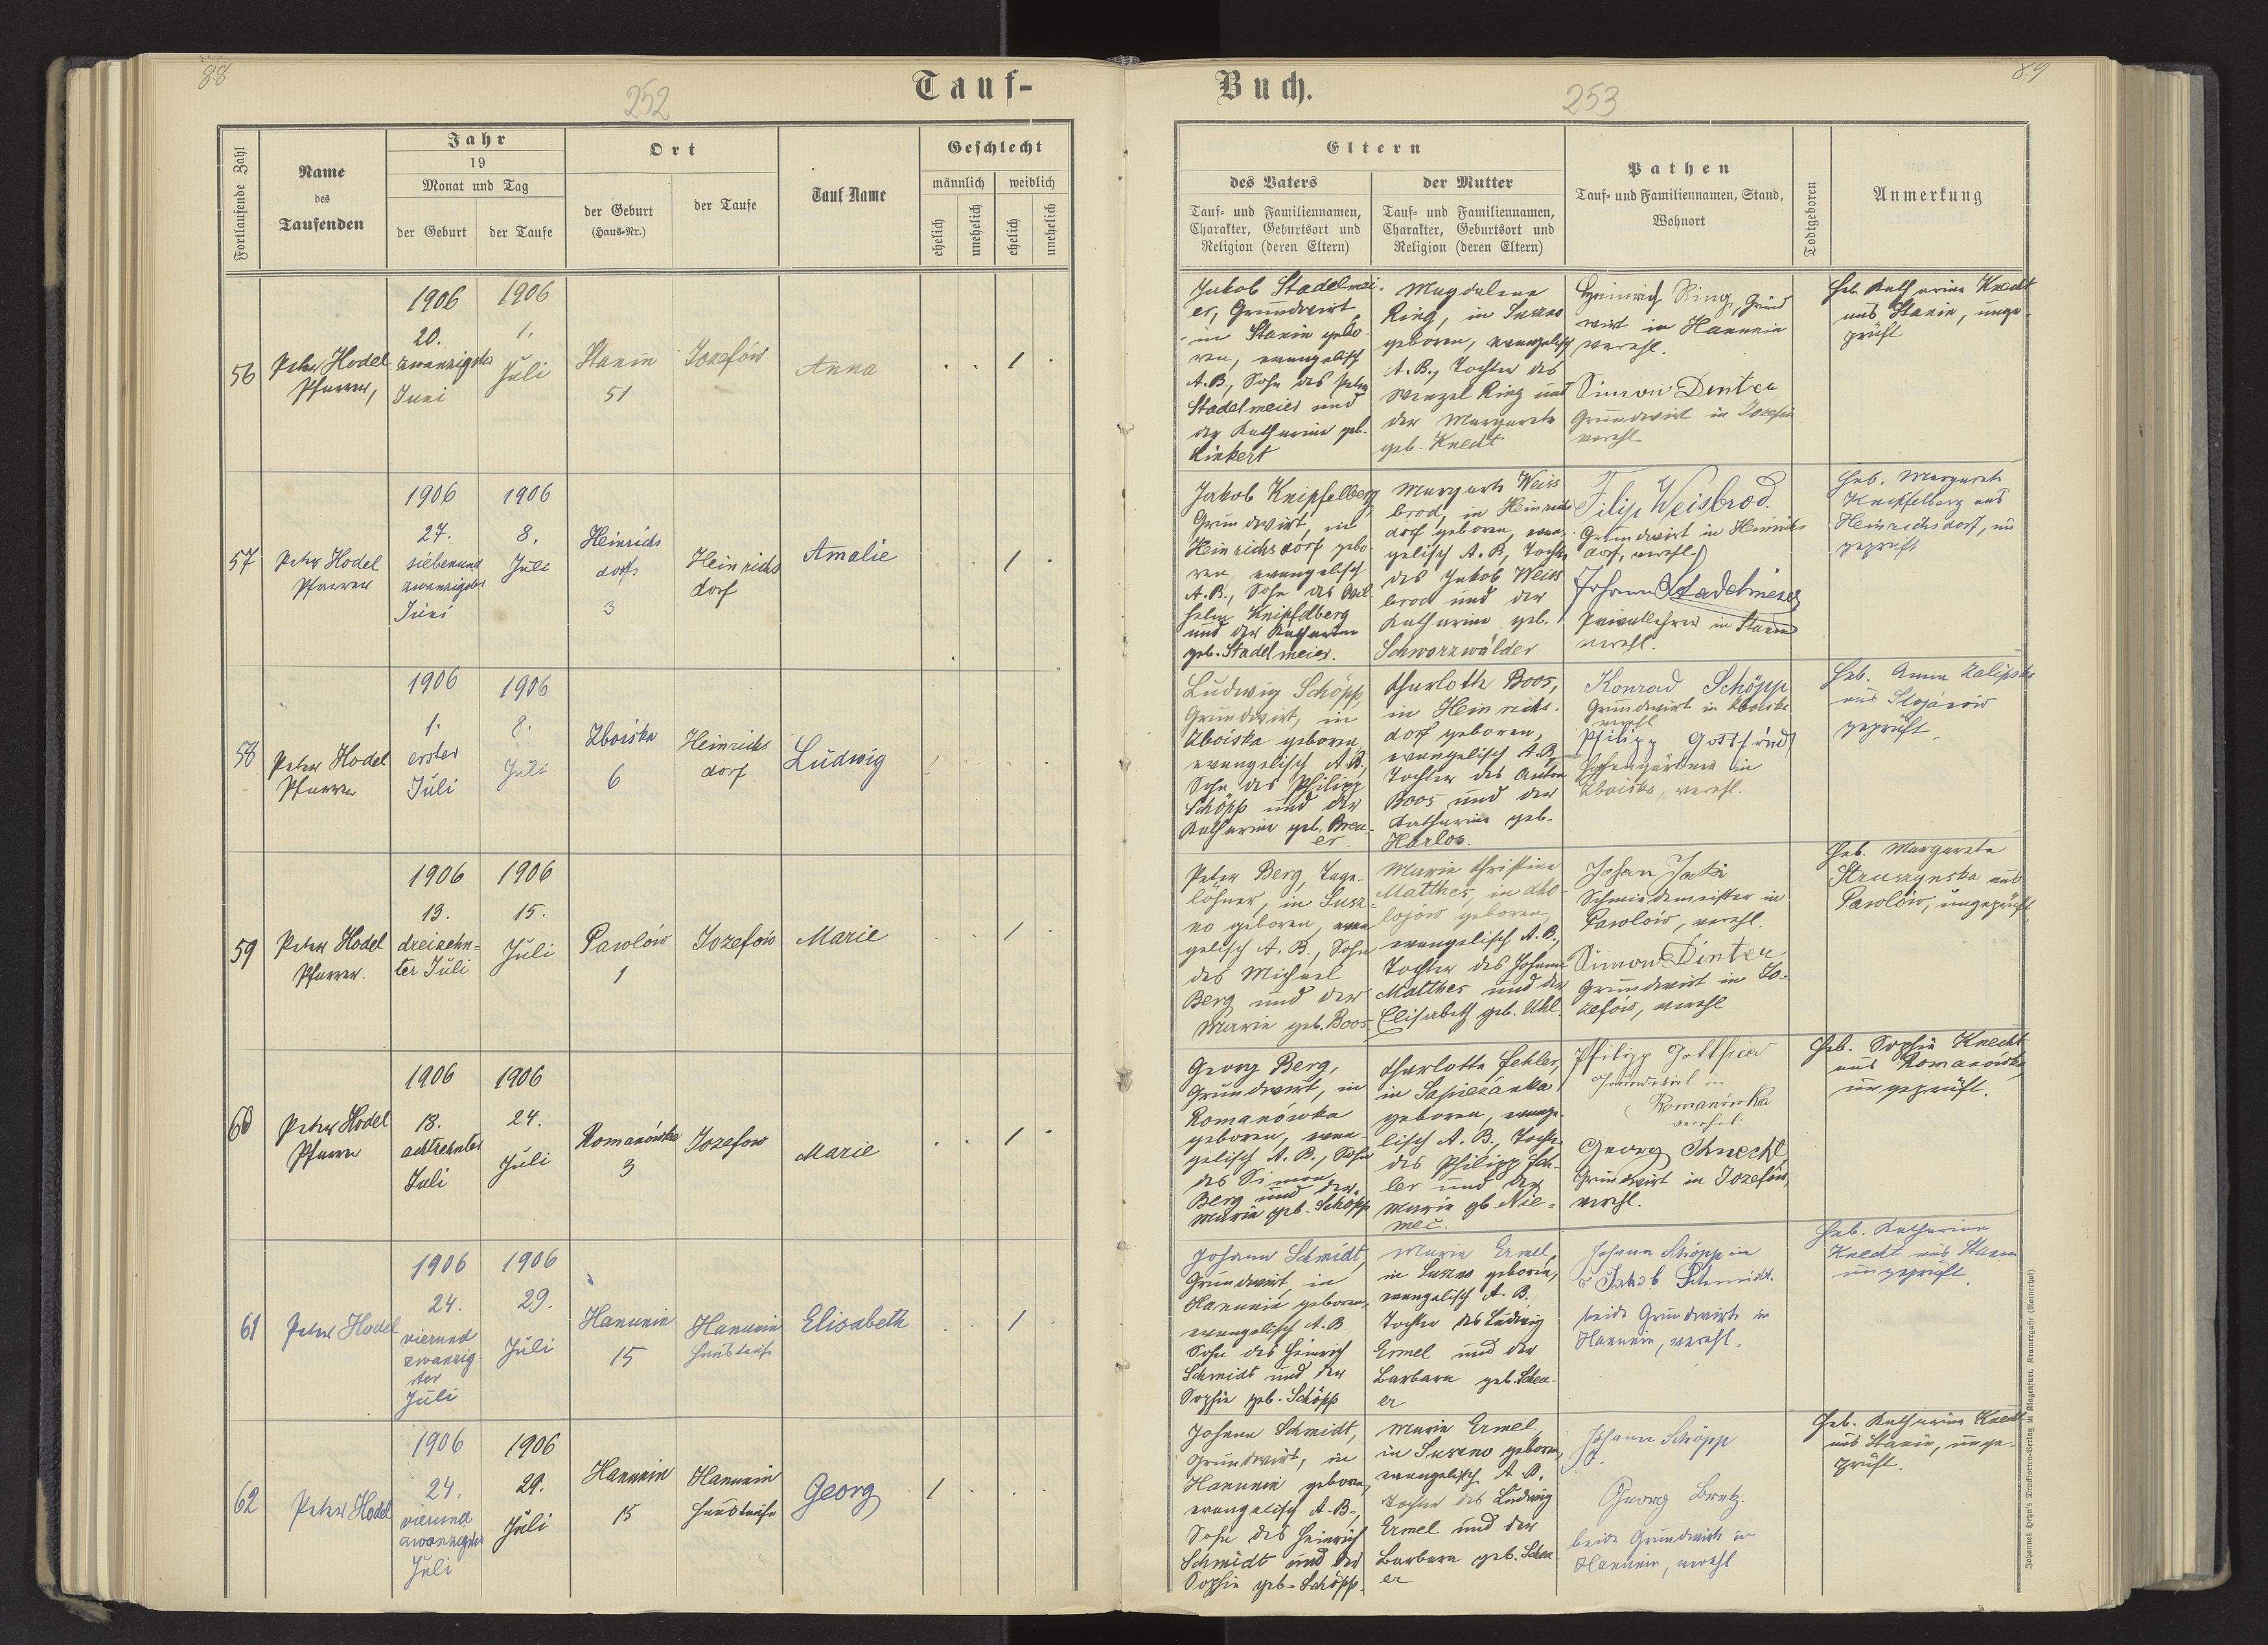 88
252
Tauf-
Fortlaufende Zahl
Name
des
Taufenden
Jahr
19
Monat und Tag
der Geburt
der Taufe
Ort
der Geburt
(Haus-Nr.)
der Taufe
Tauf Name
Geschlecht
männlich
weiblich
ehelich
unehelich
ehelich
unehelich
56
Peter Hodel
Pfarrer,
1906
20.
zwanzigster
Juni
1906
1.
Juli
Stanin
51
Jozefów
Anna
1
57
Peter Hodel
Pfarrer
1906
27.
siebenund
zwanzigster
Juni
1906
8.
Juli
Heinrichs
dorf
3
Heinrichs
dorf
Amalie
1
58
Peter Hodel
Pfarrer
1906
1.
erster
Juli
1906
8.
Juli
Zboiska
6
Heinrichs
dorf
Ludwig
1
59
Peter Hodel
Pfarrer.
1906
13.
dreizehn=
ter Juli
1906
15.
Juli
Pawlów
1
Jozefów
Marie
1
60
Peter Hodel
Pfarrer
1906
18.
achtzehnter
Juli
1906
24.
Juli
Romanówka
3
Jozefow
Marie
1
61
Peter Hodel
1906
24.
vierund
zwanzig-
ster
Juli
1906
29.
Juli
Hanunin
15
Hanunin
Haustaufe
Elisabeth
1
62
Peter Hodel
1906
24.
vierund
zwanzigster
Juli
1906
29.
Juli
Hanunin
15
Hanunin
Haustaufe
Georg
1
89
Buch.
253
Eltern
des Vaters
Tauf- und Familiennamen,
Charakter, Geburtsort und
Religion (deren Eltern)
der Mutter
Tauf- und Familiennamen,
Charakter, Geburtsort und
Religion (deren Eltern)
Pathen
Tauf- und Familiennamen, Stand,
Wohnort
Todtgeboren
Anmerkung
Jakob Stadelmei-
er, Grundwirt
in Stanin gebo-
ren, evangelisch
A.B., Sohn des Peter
Stadelmeier und
der Katharina geb.
Rinkert
Magdalena
Ring, in Suszno
geboren, evangelisch
A.B., Tochter des
Wenzel Ring und
der Margareta
geb. Knecht
Heinrich Ring, Grund
wirt in Hanunin
verehl.
Simon Denter
Grundwirt in Jozefów
verehl.
Heb. Katharina Knecht
aus Stanin, unge-
prüft
Jakob Knipfelberg
Grundwirt, in
Heinrichsdorf gebo-
ren, evangelisch
A.B., Sohn des Wil
helm Knipfelberg
und der Katharina
geb. Stadelmeier.
Margareta Weiss
brod, in Heinrichs
dorf geboren, evan-
gelisch A.B., Tochter
des Jakob Weiss
brod und der
Katharina geb.
Schwarzwälder
Filip Weisbrod.
Grundwirt in Heinrichs
dorf, verehl.
Johann Stadelmeier
Privatlehrer in Stanin
verehl.
Heb. Margareta
Knipfelberg aus
Heinrichsdorf, un
geprüft
Ludwig Schöpp,
Grundwirt, in
Zboiska geboren
evangelisch A.B.,
Sohn des Philipp
Schöpp und der
Katharina geb. Breu-
er.
Charlotte Boos,
in Heinrichs-
dorf geboren,
evangelisch A.B.,
Tochter des Anton
Boos und der
Katharina geb.
Harlos.
Konrad Schöpp
Grundwirt in Zboiska
verehl
Philipp
in
Zboiska, verehl.
Heb. Anna Zalipska
aus Stojanów
geprüft.
Peter Berg, Tage-
löhner, in Susz-
no geboren, evan
gelisch A.B., Sohn
des Michael
Berg und der
Marie geb. Boos
Marie Christine
Matthes, in Cho-
lojów geboren,
evangelisch A.B.,
Tochter des Johann
Matthes und der
Elisabeth geb. Uhl.
Johan Jaki
Schmiedemeister in
Pawlów, verehl.
Simon Dinter
Grundwirt in Jo-
zefów, verehl
Heb. Margareta
Struszynska aus
Pawlów, ungeprüft
Georg Berg,
Grundwirt, in
Romanówka
geboren, evan-
gelisch A.B., Sohn
des Simon
Berg und der
Marie geb. Schöpp
Charlotte Fehler,
in Sapiezanka
geboren, evange-
lisch A.B., Tochter
des Philipp Feh-
ler und der
Marie gb Nie=
mec.
Philipp Gottfried
Grundwirt in
Romanówka
verehel.
Georg Knecht,
Grundwirt in Jozefów,
verehl.
Heb. Sophie Knecht
aus Romanówka,
ungeprüft.
Johann Schmidt,
Grundwirt, in
Hanunin geboren,
evangelisch A.B.
Sohn des Heinrich
Schmidt und der
Sophie geb. Schöpp
Marie Ermel,
in Suszno geboren,
evangelisch A.B.
Tochter des Ludwig
Ermel und der
Barbara geb. Scheu-
er
Johann Schöpp in
Jakob Schmidt.
beide Grundwirte in
Hanunin, verehl.
Heb. Katharina
Knecht aus Stanin
ungeprüft.
Johann Schmidt,
Grundwirt, in
Hanunin geboren,
evangelisch A.B.,
Sohn des Heinrich
Schmidt und der
Sophie geb. Schöpp.
Marie Ermel,
in Suszno geboren,
evangelisch A.B.
Tochter des Ludwig
Ermel und der
Barbara geb. Scheu-
er
Johann Schöpp
Georg Bretz.
beide Grundwirte in
Hanunin, verehl
Heb. Katharina Knecht
aus Stanin, unge-
prüft.
Johannes Heyn's Drucksorten-Verlag in Klagenfurt, Kramergasse (Mainerhof).